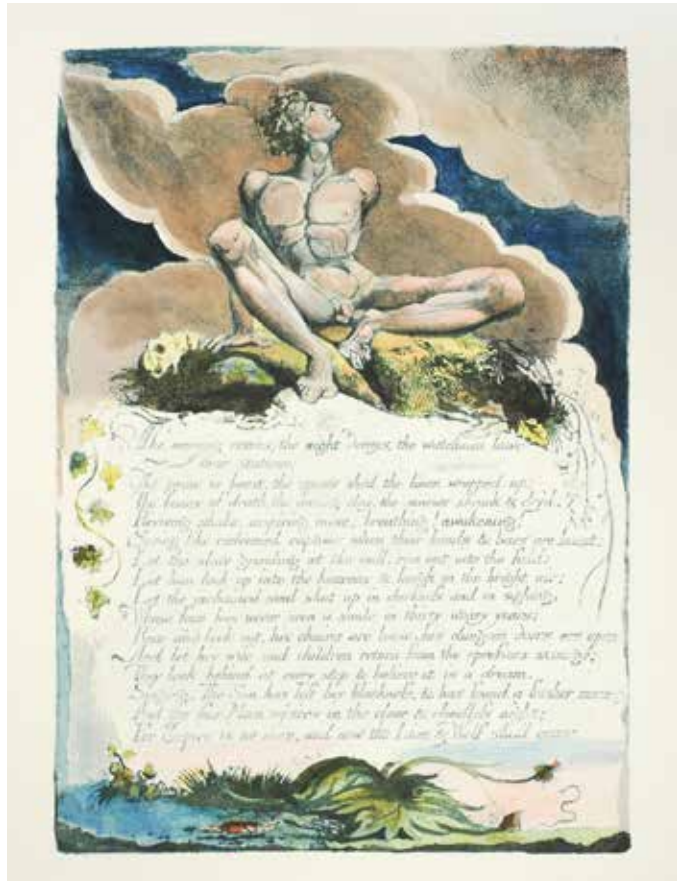 The morning comes, the night decays, the watchmen leave
their stations;
The grave is burst, the spices shed, the linen wrapped up;
The bones of death, the clay, the sinews shrunk & dry'd,
Reviving shake, inspiring move, breathing! awakening!
Spring like redeemed captives when their bonds & bars are burst;
Let the slave grinding at the mill, run out into the field:
Let him look up into the heavens & laugh in the bright air;
Let the inchained soul shut up in darkness and in sighing,
Whose face has never seen a smile in thirty weary years;
Rise and look out, his chains are loose, his dungeon doors are open
And let his wife and children return from the scourge;
They look behind at every step & believe it is a dream.
Singing. The Sun has left his blackness, & has found a fresher
And the fair Moon rejoices in the clear & cloudless night;
For Empire is no more, and now the Lion & Wolf shall cease